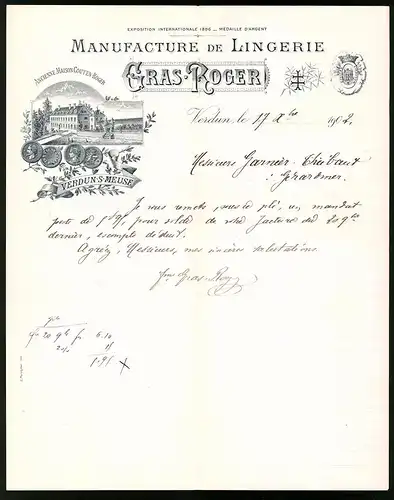 EXPOSITION INTERNATIONALE 1896 _ MÉDAILLE D'ARGENT
MANUFACTURE DE LINGERIE
ANCIENNE MAISON COUTEN-ROGER
GRAS-ROGER
VERDUN-S-MEUSE
Verdun, le 17 Xbre 1902.
Messieurs Garnier-Thiebaut
à Gérardmer.
Je vous remets, sous le pli, un mandat
poste de pour solde de votre facture du 20 9bre
dernier, escompte déduit.
Agréez, Messieurs, mes sincères salutations.
Gras-Roger
20 9bre 6.10
2%